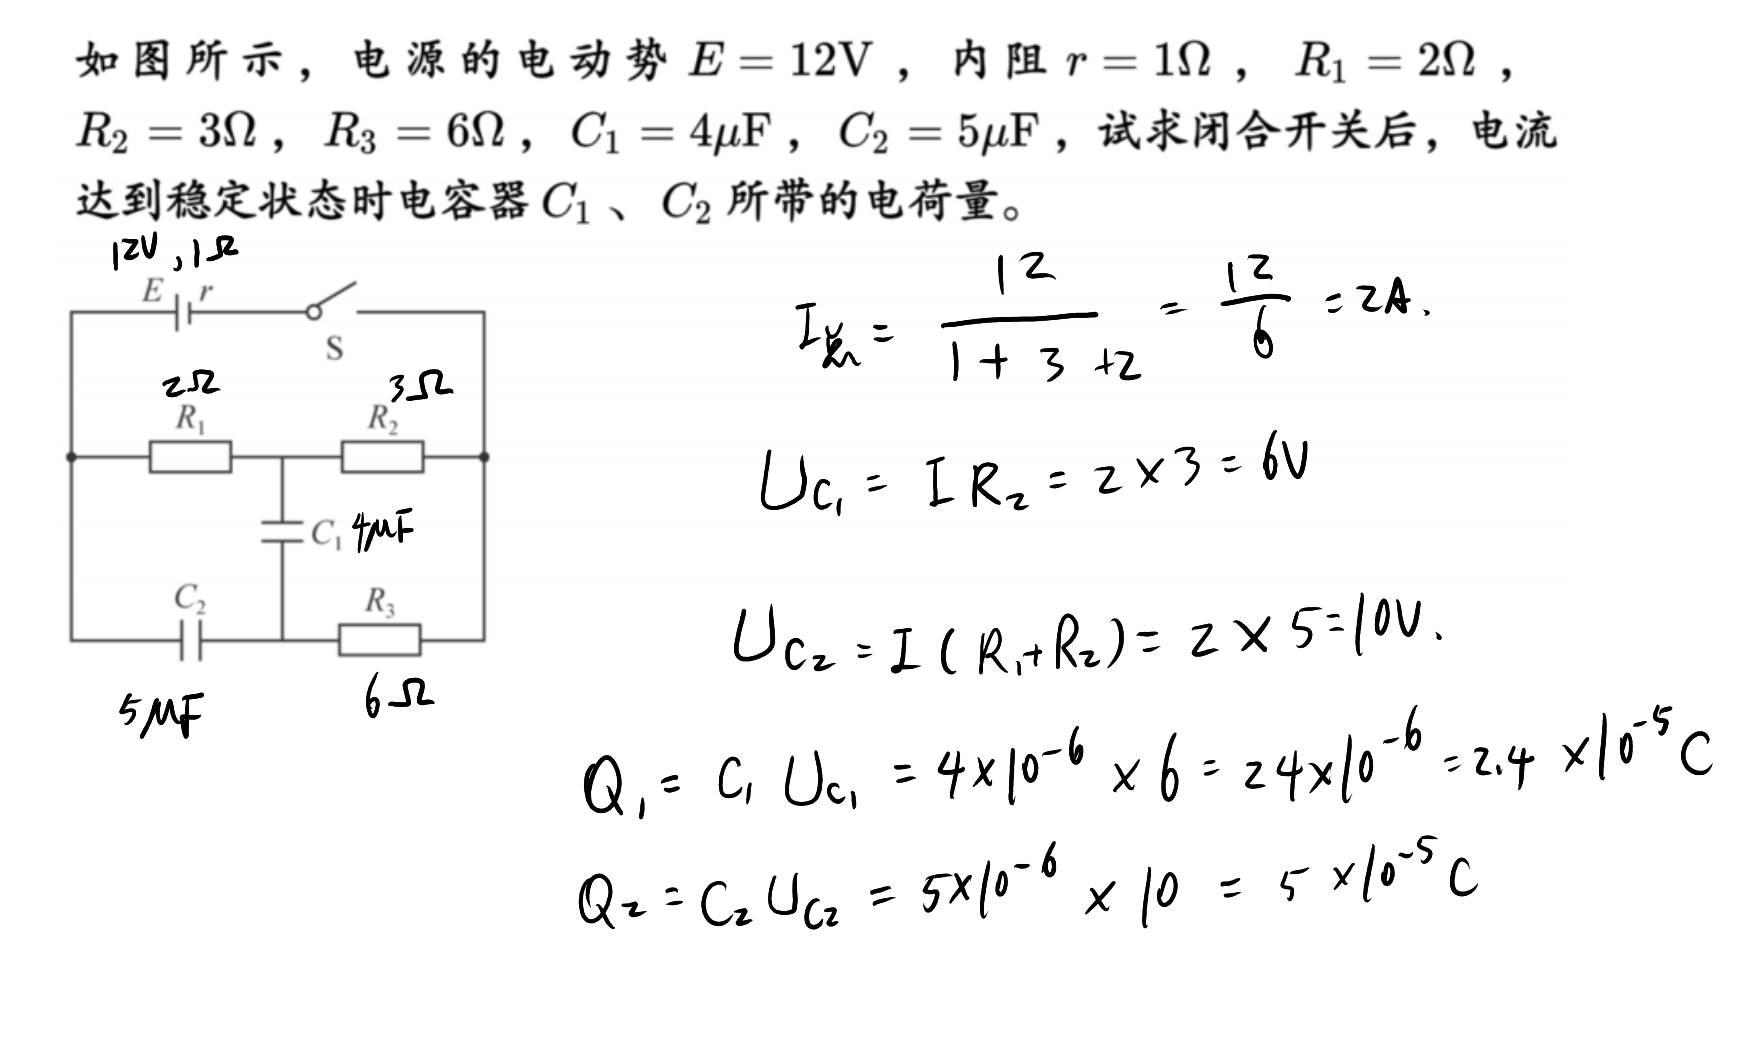 如图所示，电源的电动势 E = 12V ，内阻 r = 1Ω ， R₁ = 2Ω ，
R₂ = 3Ω ， R₃ = 6Ω ， C₁ = 4μF ， C₂ = 5μF ，试求闭合开关后，电流
达到稳定状态时电容器 C₁ 、 C₂ 所带的电荷量。
12V , 1Ω
E r
S
2Ω 3Ω
R₁ R₂
C₁ 4μF
C₂ R₃
5μF 6Ω
I总 = 12/(1+3+2) = 12/6 = 2A.
U_C₁ = I R₂ = 2 × 3 = 6V
U_C₂ = I ( R₁+R₂ ) = 2 × 5 = 10V.
Q₁ = C₁ U_C₁ = 4×10⁻⁶ × 6 = 24×10⁻⁶ = 2.4 ×10⁻⁵ C
Q₂ = C₂ U_C₂ = 5×10⁻⁶ × 10 = 5 ×10⁻⁵ C